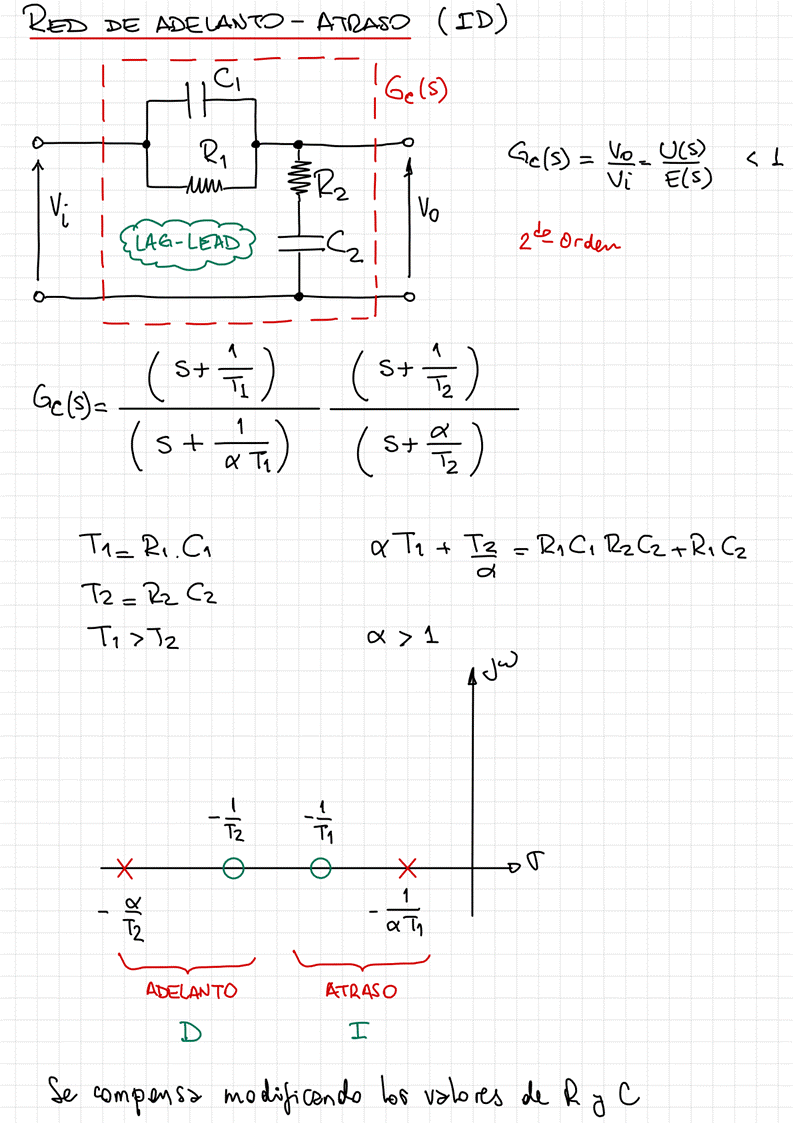 RED DE ADELANTO - ATRASO (ID)
C1
Gc(s)
R1
R2
Vi
LAG-LEAD
C2
Vo
Gc(s) = Vo/Vi = U(s)/E(s) < 1
2do Orden
Gc(s) = (s + 1/T1) / (s + 1/(α T1)) (s + 1/T2) / (s + α/T2)
T1 = R1 . C1
αT1 + T2/α = R1C1 R2C2 + R1C2
T2 = R2 C2
T1 > T2
α > 1
jω
-1/T2
-1/T1
σ
-α/T2
-1/(αT1)
ADELANTO
ATRASO
D
I
Se compensa modificando los valores de R y C